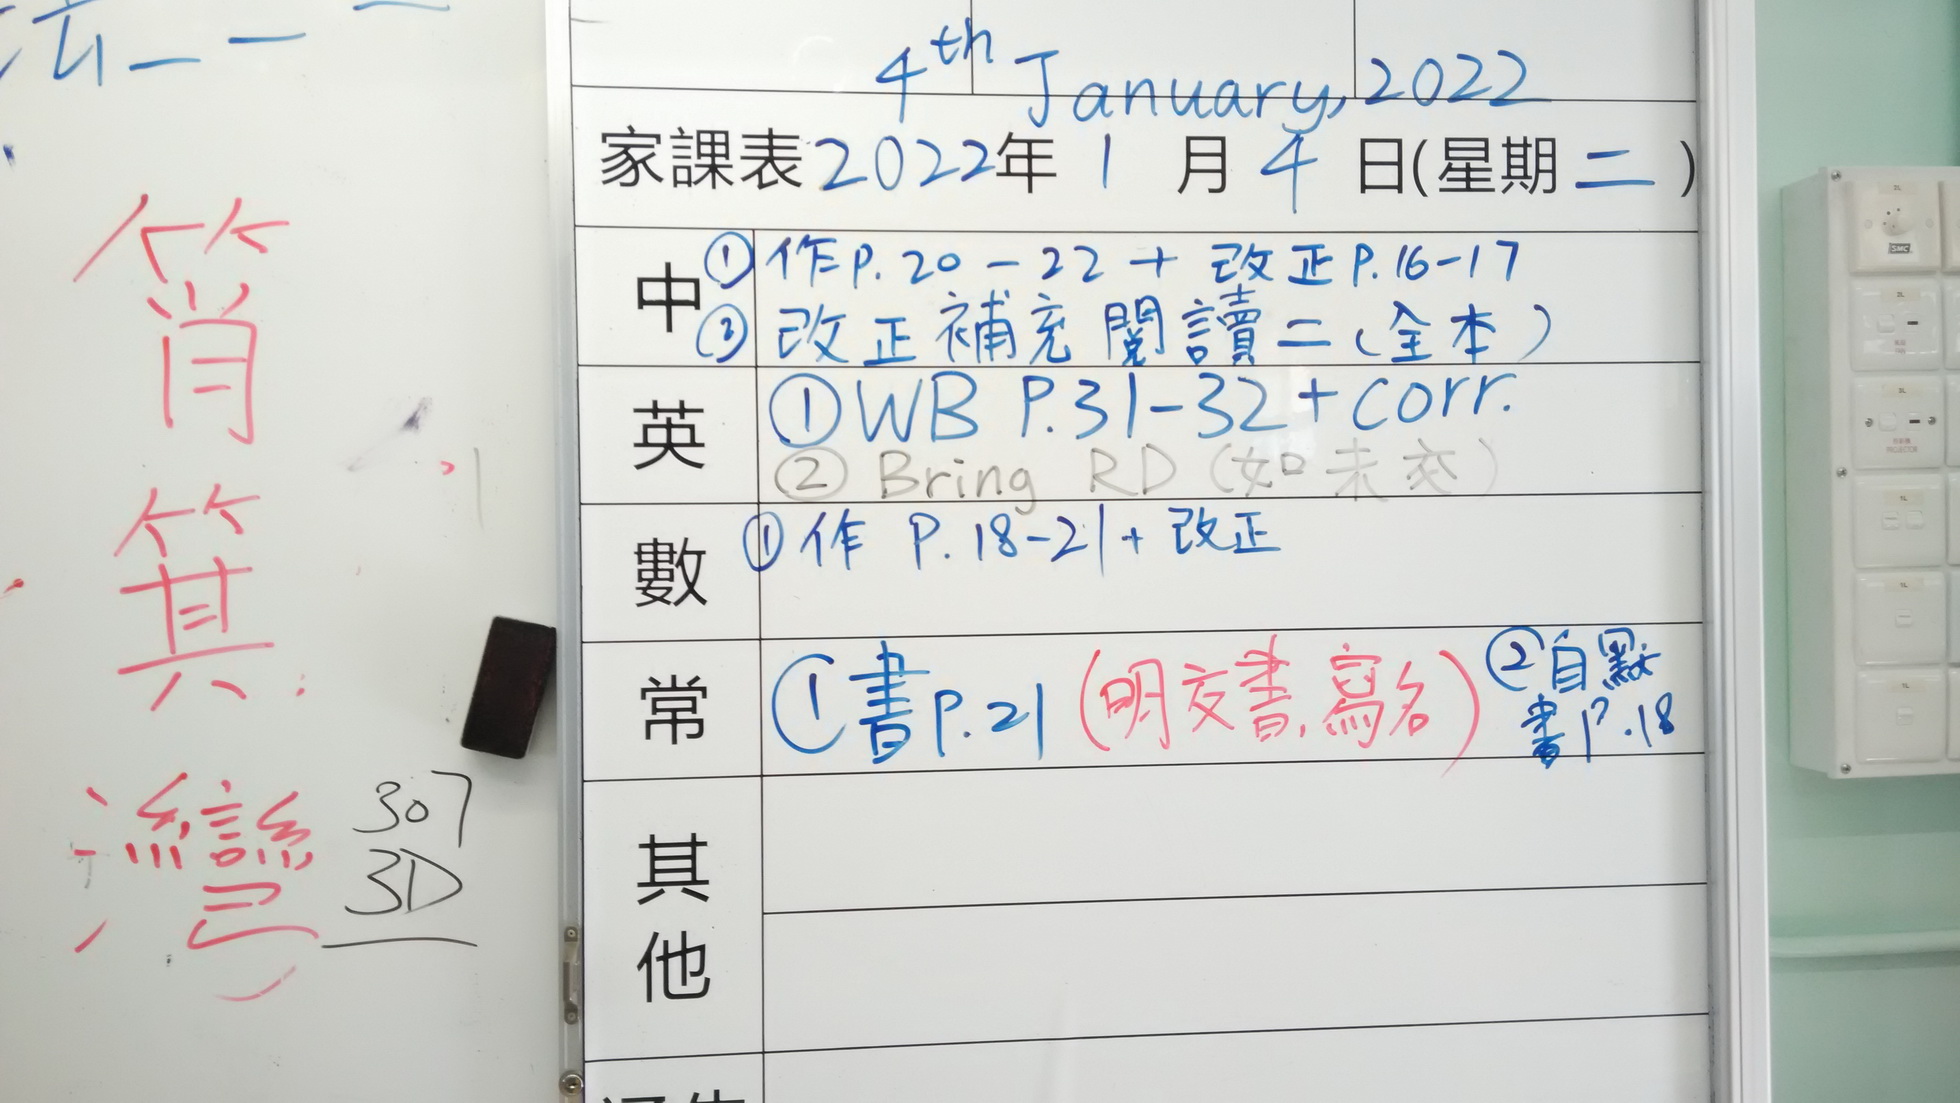 筲
箕
灣
307
3D
4th January, 2022
家課表2022年1月4日(星期二)
中
①作P.20-22+改正P.16-17
②改正補充閱讀二(全本)
英
①WB P.31-32+corr.
②Bring RD(如未交)
數
①作 P.18-21+改正
常
①書P.21(明交書,寫名)
②自默
書P.18
其
他